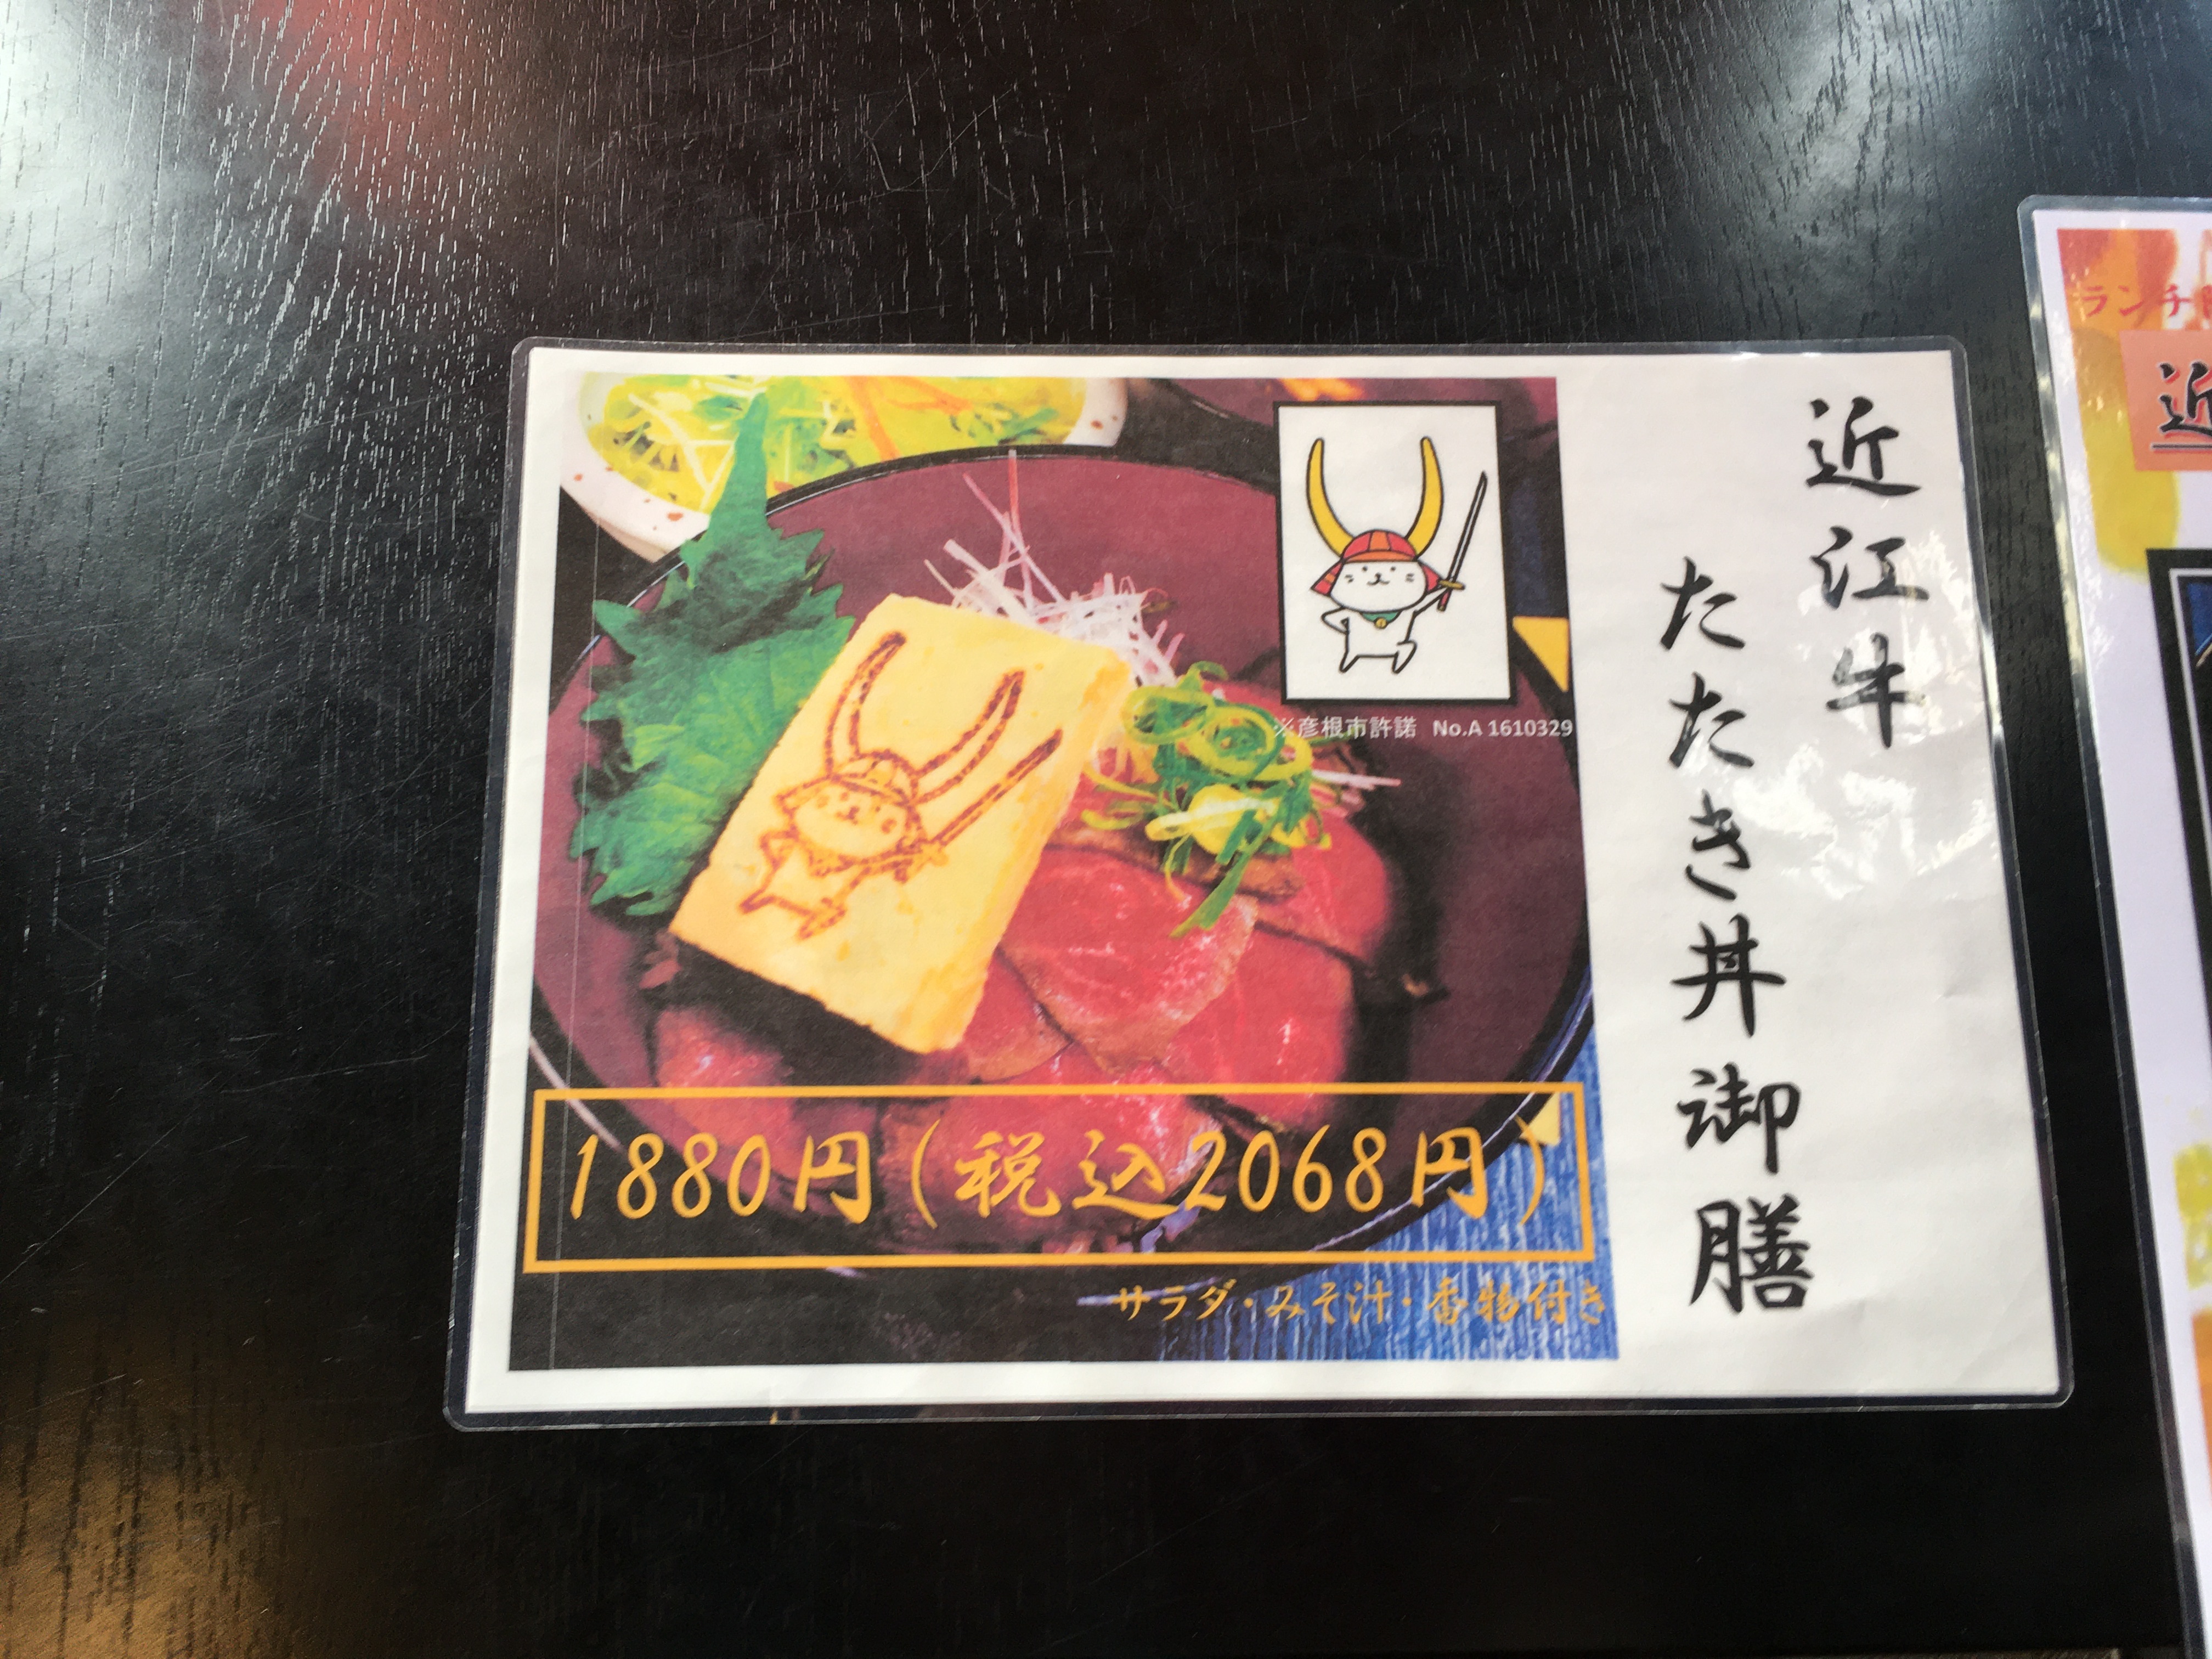 近江牛
たたき丼御膳
※彦根市許諾 No.A 1610329
1880円(税込2068円)
サラダ・みそ汁・香物付き
ランチ
近